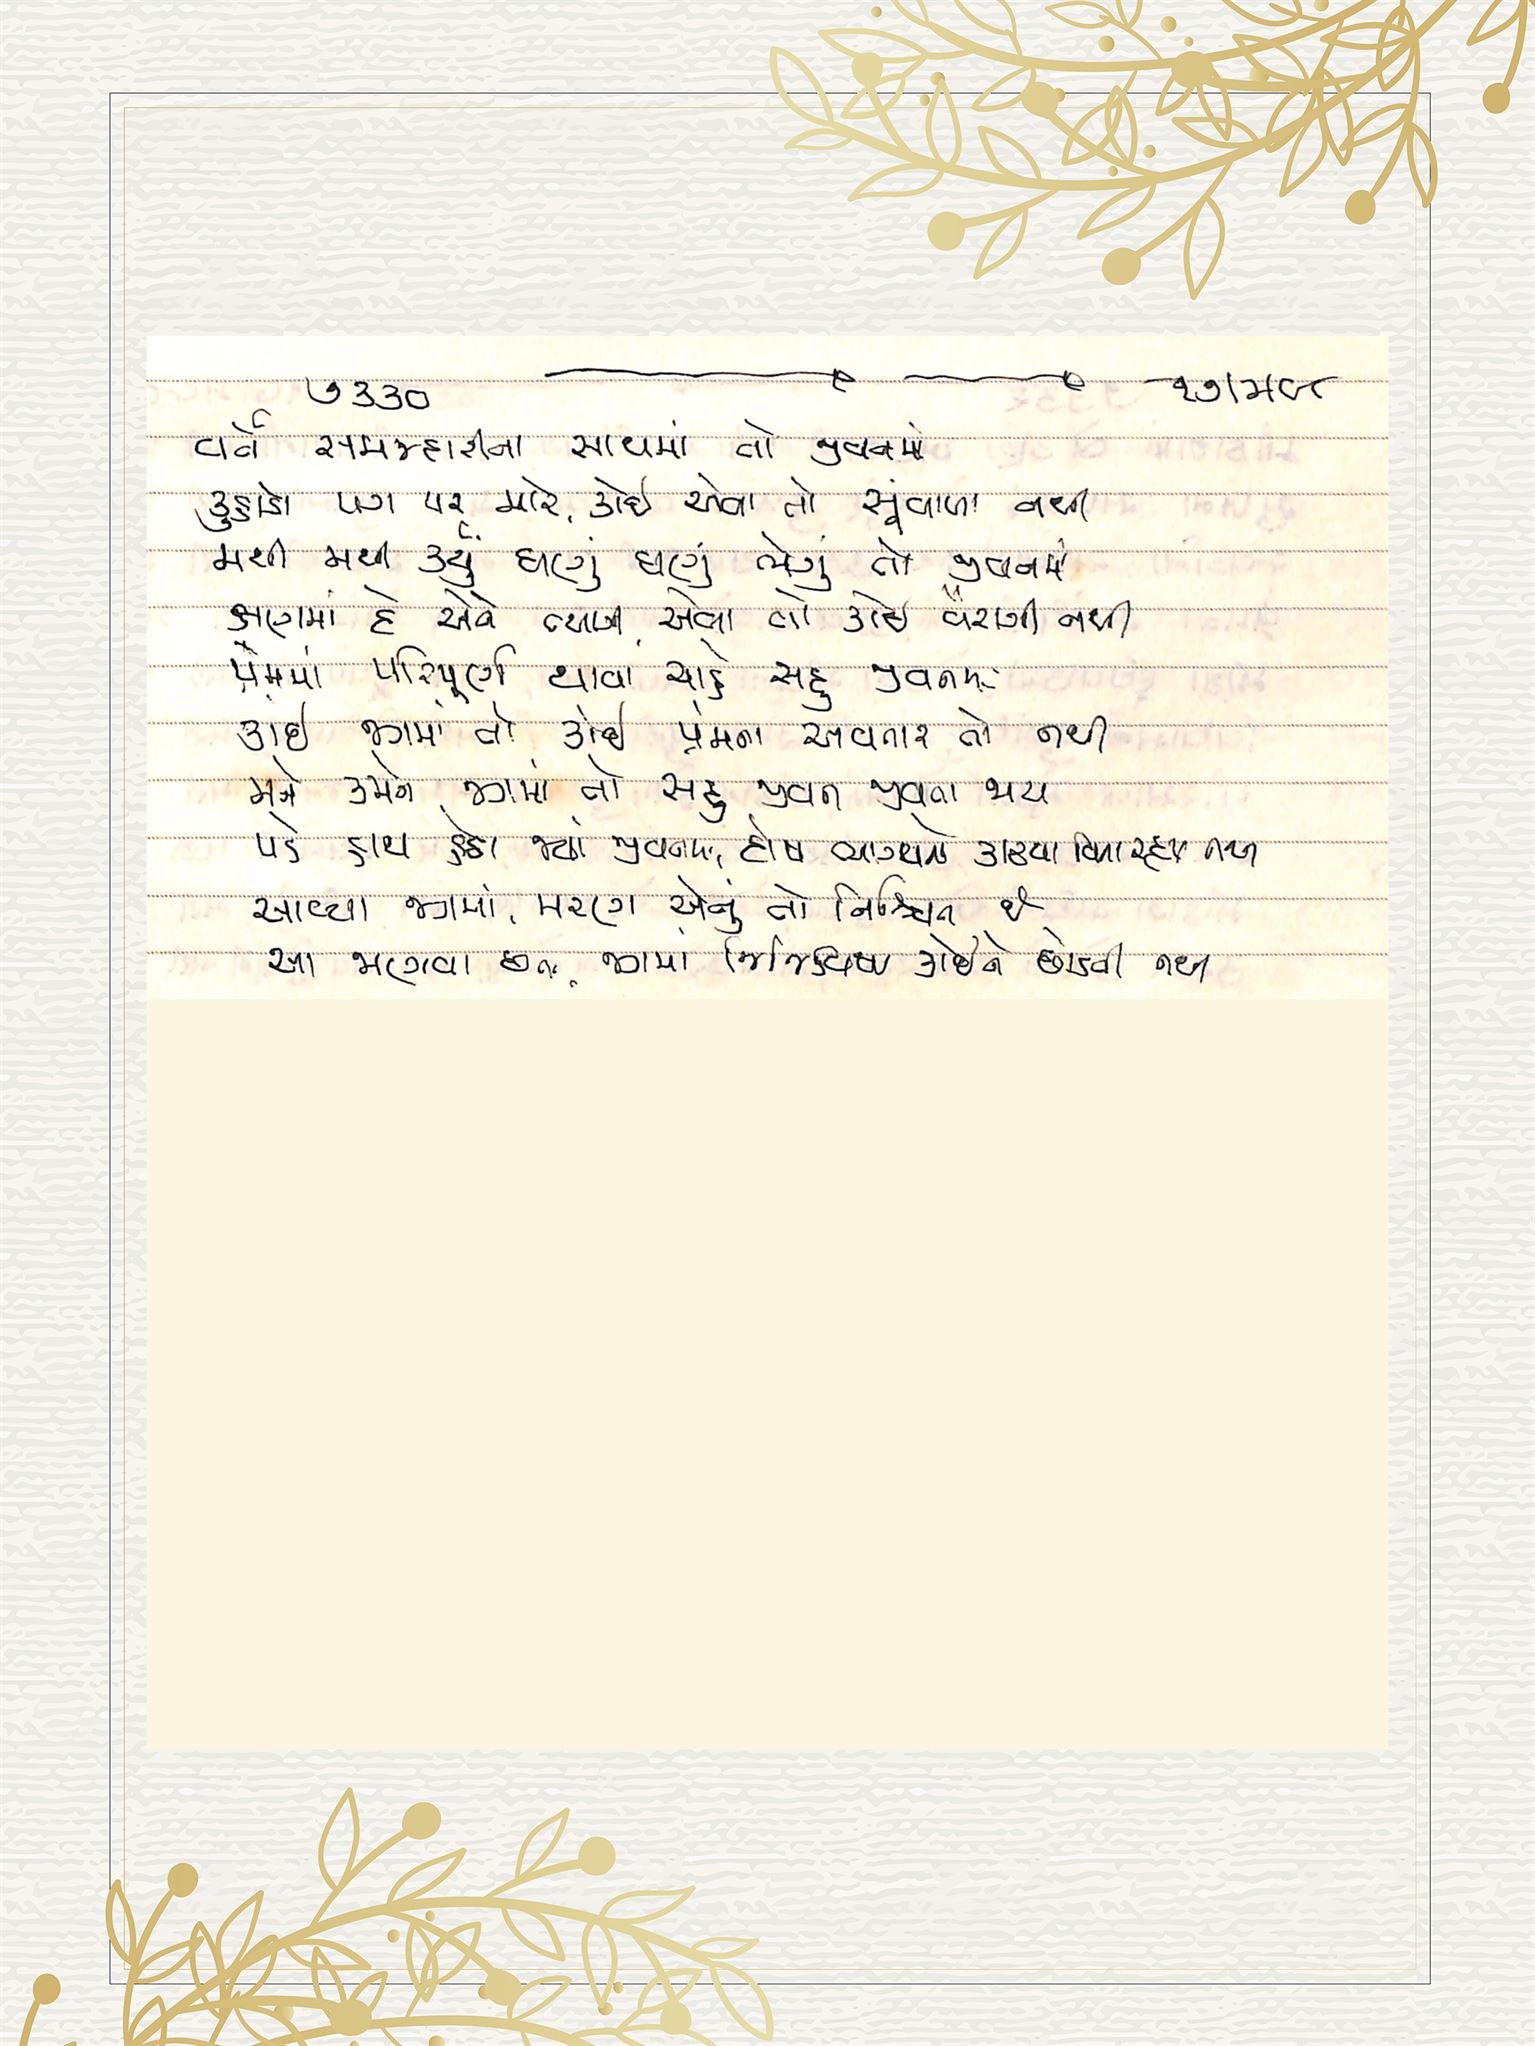 ૭૩૩૦
વર્તે સમજદારીના સાથમાં તો જીવનમાં
કુહાડો પગ પર મારે, કોઈ એવા તો સુંવાળા નથી
મથી મથી કર્યું ઘણું ઘણું ભેગું તો જીવનમાં
ક્ષણમાં દે એને ત્યાગી, એવા તો કોઈ વૈરાગી નથી
પ્રેમમાં પરિપૂર્ણ થાવા ચાહે સહુ જીવનમાં
કાંઈ જગમાં તો કોઈ પ્રેમના અવતાર તો નથી
મને કમને જગમાં તો સહુ જીવન જીવતા જાય
પડે હાથ હેઠા જ્યાં જીવનમાં, દોષ ભાગ્યને કાઢવા વિના રહેતા નથી
આવ્યા જગમાં, મરણ એનું તો નિશ્ચિત છે
આ જાણવા છતાં, જગમાં જિજીવિષા કોઈને છોડતી નથી